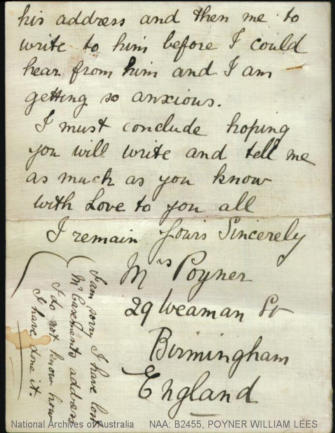 his address and then me to
write to him before I could
hear from him and I am
getting so anxious.
I must conclude hoping
you will write and tell me
as much as you know
with Love to you all
I remain Yours Sincerely
Mrs Poyner
29 Weaman St
Birmingham
England
I am sorry I have lost
Mr address
I do not know how
I have done it.
National Archives of Australia NAA: B2455, POYNER WILLIAM LEES